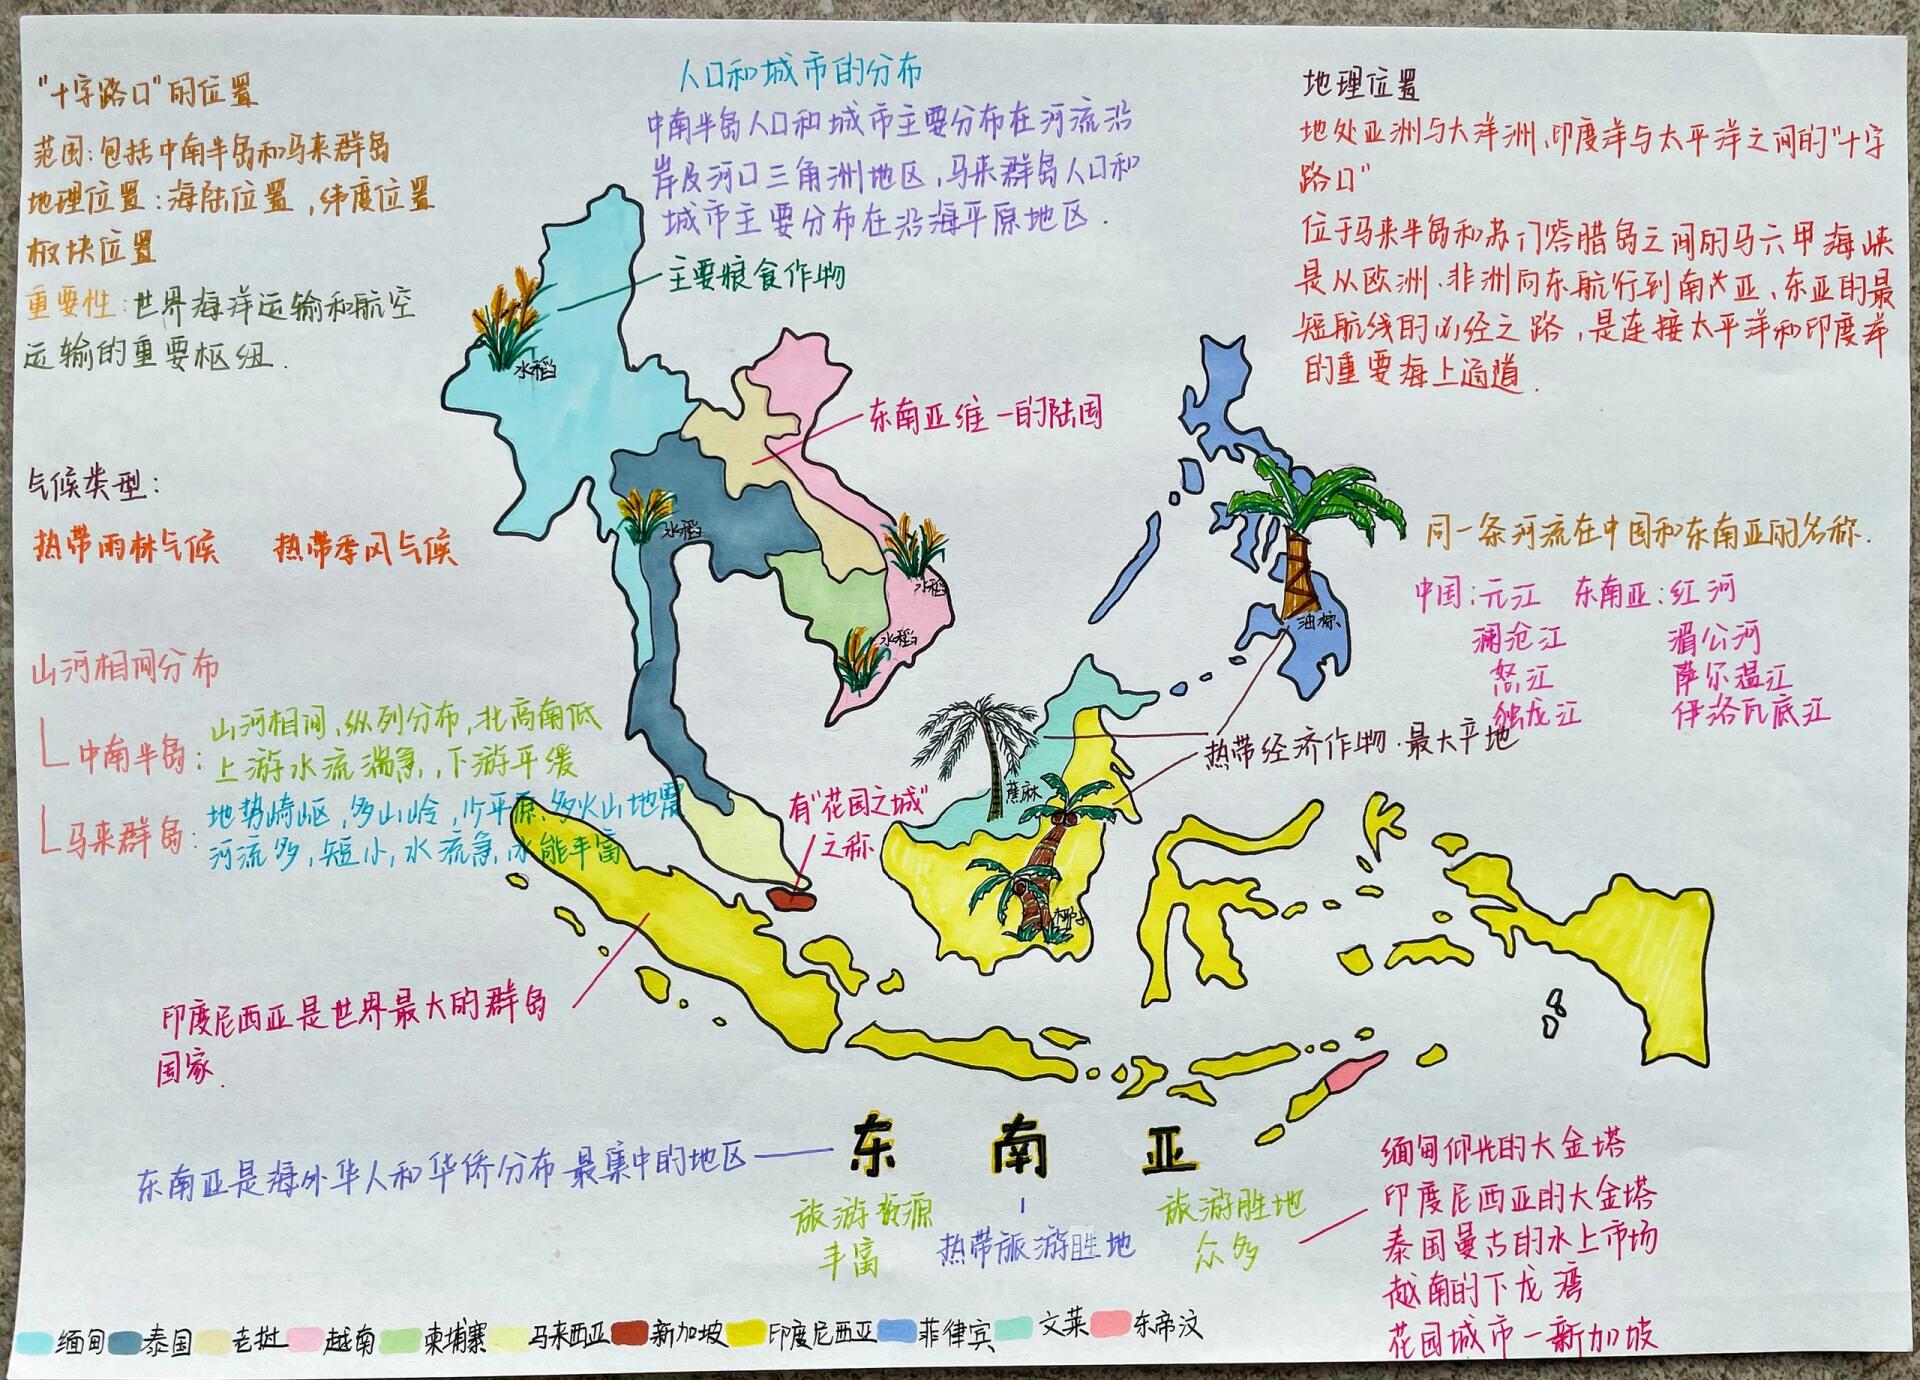 "十字路口"的位置
范围:包括中南半岛和马来群岛
地理位置:海陆位置,纬度位置
板块位置
重要性:世界海洋运输和航空
运输的重要枢纽.
气候类型:
热带雨林气候 热带季风气候
山河相间分布
中南半岛:
山河相间,纵列分布,北高南低
上游水流湍急,下游平缓
马来群岛:
地势崎岖,多山岭,少平原、多火山地震
河流多,短小,水流急,水能丰富
人口和城市的分布
中南半岛人口和城市主要分布在河流沿
岸及河口三角洲地区,马来群岛人口和
城市主要分布在沿海平原地区.
主要粮食作物
水稻
东南亚维一的陆国
水稻
水稻
水稻
地理位置
地处亚洲与大洋洲、印度洋与太平洋之间的"十字
路口"
位于马来半岛和苏门答腊岛之间的马六甲海峡
是从欧洲、非洲向东航行到南亚、东亚的最
短航线的必经之路,是连接太平洋和印度洋
的重要海上通道.
同一条河流在中国和东南亚的名称.
中国:元江 东南亚:红河
澜沧江 湄公河
怒江 萨尔温江
独龙江 伊洛瓦底江
油棕
热带经济作物·最大平地
蕉麻
椰子
有"花园之城"
之称
印度尼西亚是世界最大的群岛
国家.
东南亚是海外华人和华侨分布最集中的地区
东南亚
旅游资源
丰富
热带旅游胜地
旅游胜地
众多
缅甸仰光的大金塔
印度尼西亚的大金塔
泰国曼古的水上市场
越南的下龙湾
花园城市一新加坡
缅甸 泰国 老挝 越南 柬埔寨 马来西亚 新加坡 印度尼西亚 菲律宾 文莱 东帝汶